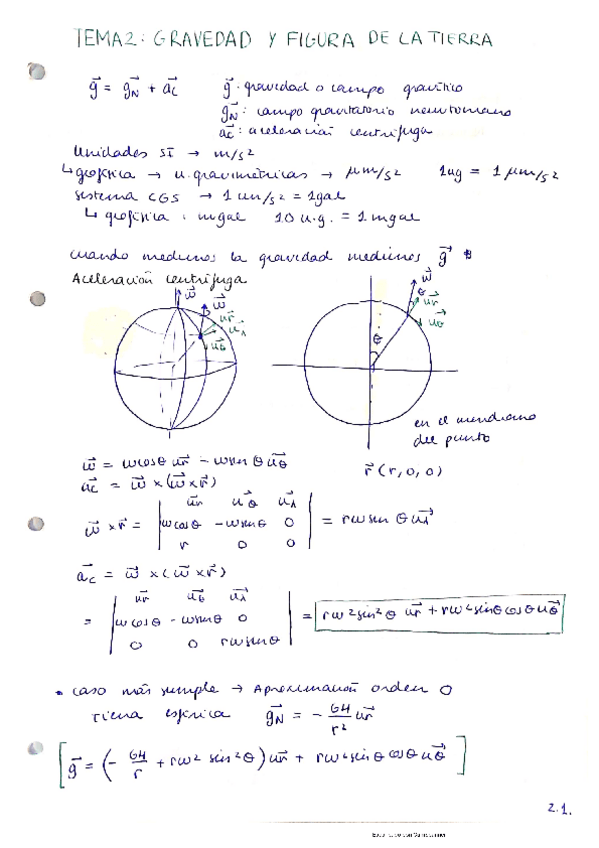 TEMA 2: GRAVEDAD Y FIGURA DE LA TIERRA
g⃗ = g⃗N + a⃗c g⃗: gravedad o campo gravífico
g⃗N: campo gravitatorio newtoniano
a⃗c: aceleración centrífuga
Unidades SI → m/s²
↳ geofísica → u. gravimétricas → μm/s² 1ug = 1 μm/s²
Sistema CGS → 1 cm/s² = 1gal
↳ geofísica: mgal 10 u.g. = 1 mgal
cuando medimos la gravedad medimos g⃗
Aceleración centrífuga
ω⃗ ω⃗ u⃗r u⃗λ u⃗θ
ω⃗ θ u⃗r u⃗θ θ
en el meridiano
del punto
ω⃗ = ωcosθ u⃗r − ωsenθ u⃗θ
r⃗ (r, 0, 0)
a⃗c = ω⃗ × (ω⃗ × r⃗)
u⃗r u⃗θ u⃗λ
ω⃗ × r⃗ = | ωcosθ −ωsenθ 0 | = rωsenθ u⃗λ
r 0 0
a⃗c = ω⃗ × (ω⃗ × r⃗)
u⃗r u⃗θ u⃗λ
= | ωcosθ −ωsenθ 0 | = rω²sin²θ u⃗r + rω²sinθcosθ u⃗θ
0 0 rωsenθ
• caso más simple → Aproximación orden 0
Tierra esférica g⃗N = − GM/r² u⃗r
[ g⃗ = (− GM/r + rω² sin²θ) u⃗r + rω²sinθcosθ u⃗θ ]
2.1.
Escaneado con CamScanner